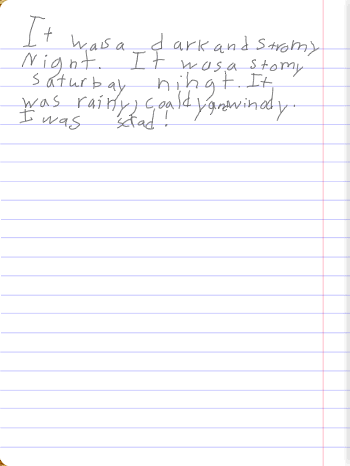 It was a dark and stromy
Night. It was a stomy
saturbay nihgt. It
was rainy, coaldy and windy.
I was sad!